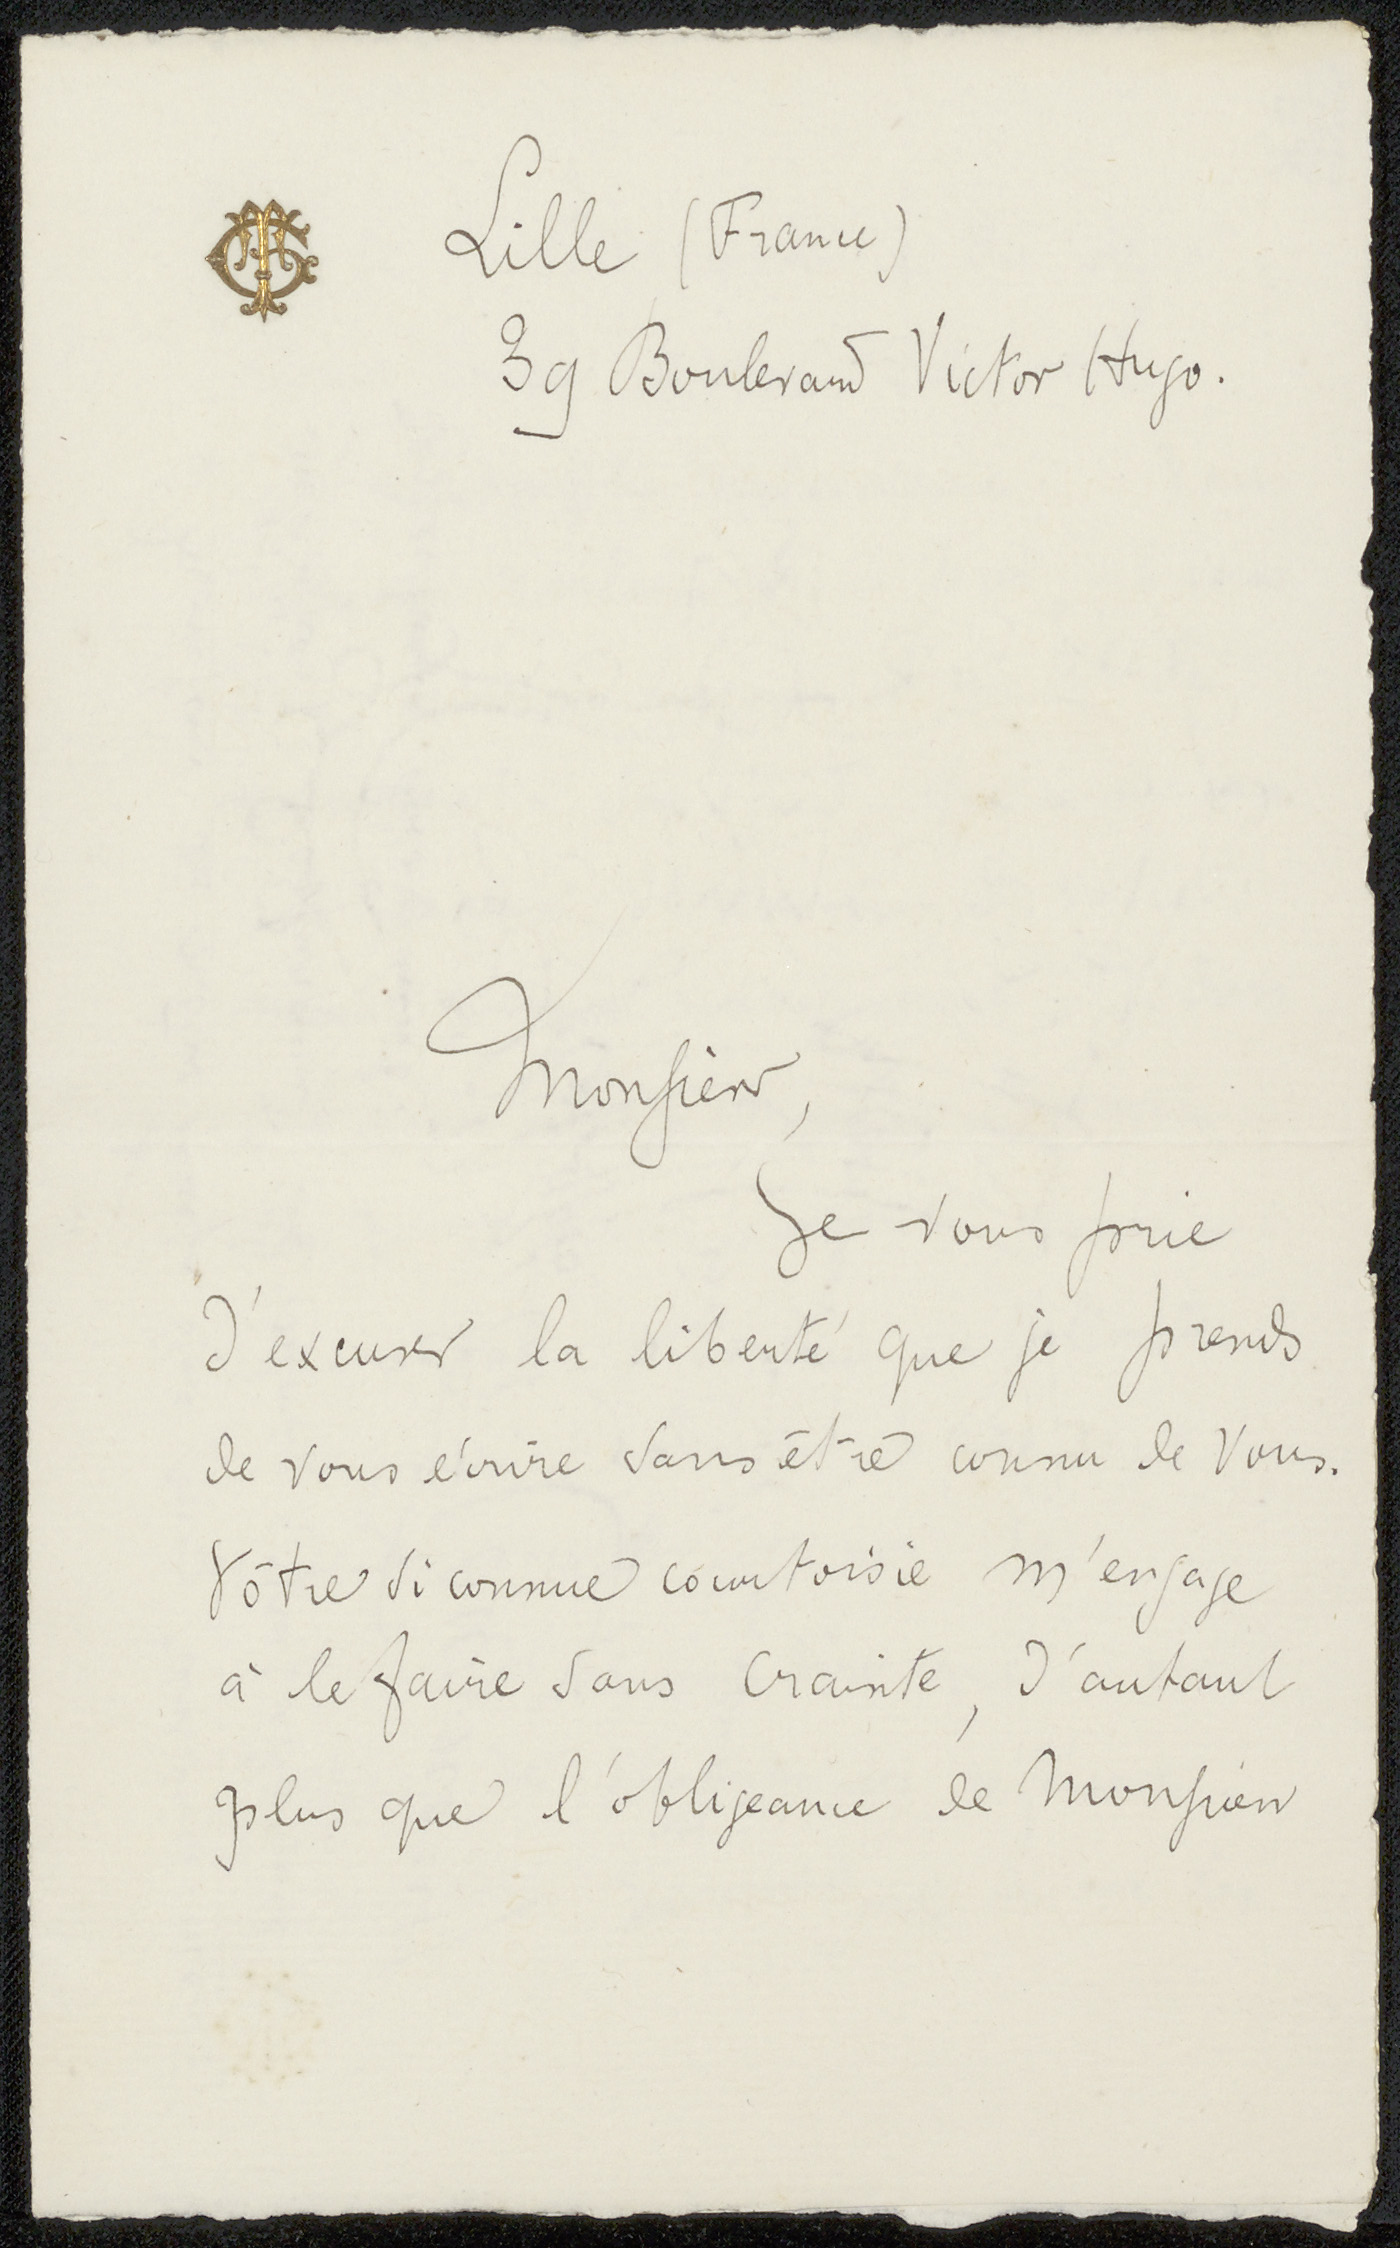 Lille (France)
39 Boulevard Victor Hugo.
Monsieur,
Je vous prie
d'excuser la liberté que je prends
de vous écrire sans être connu de vous.
Vôtre si connue courtoisie m'engage
à le faire sans crainte, d'autant
plus que l'obligeance de Monsieur